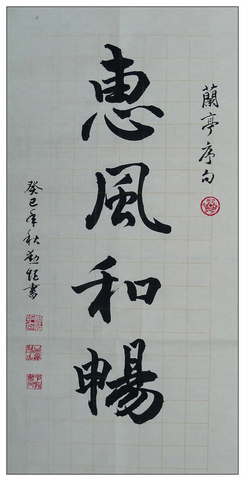 蘭亭序句
惠風和暢
癸巳年秋